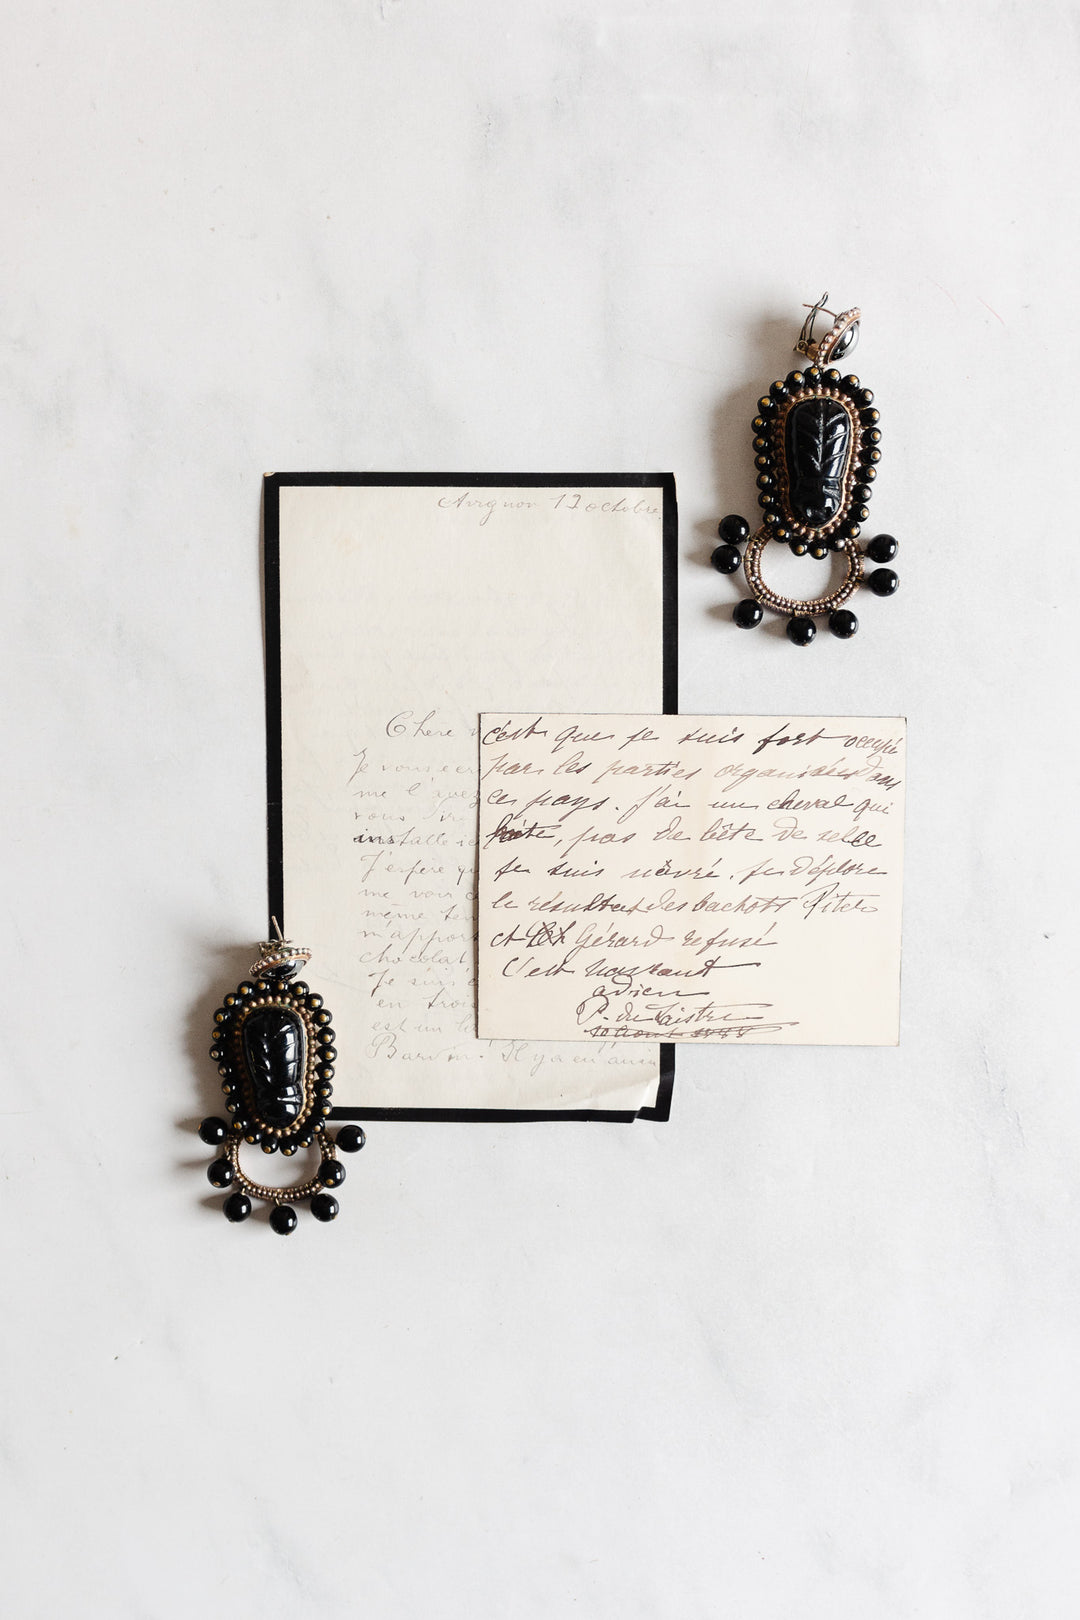 Avignon 12 octobre
Chere
Je vous ecr
me l'avez
vous dire
installe ic
J'espère qu
me voir
même tem
m'apport
chocolat
Je suis
en trois
est un
Baron! Il y a eu
c'est que je suis fort occupé
par les parties organisées dans
ce pays. j'ai un cheval qui
boite, pas de bête de selle
je suis navré. je déplore
le résultat des bachots
et Gérard refusé
C'est navrant
adieu
P. du
10 Aout